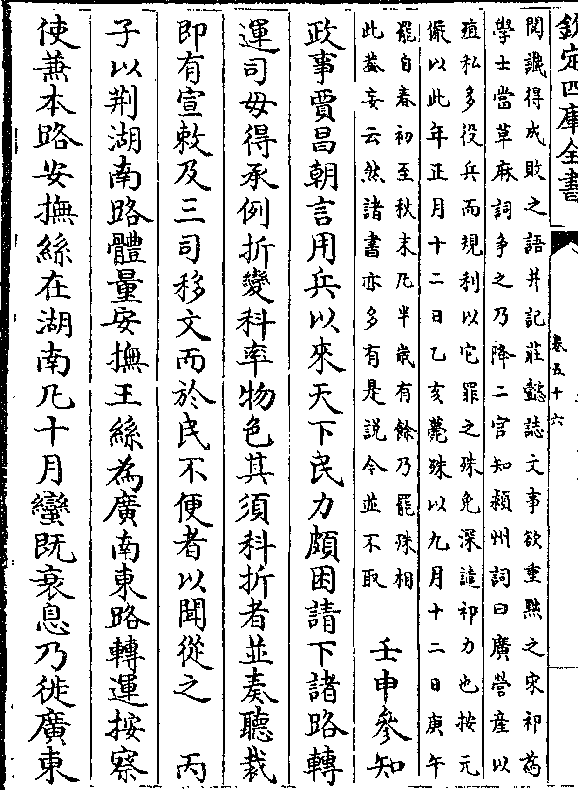 欽定四庫全書
卷五十六
閱讖得成敗之語并記莊懿誌文事欲重黜之宋祁爲
學士當草麻詞争之乃降二官知潁州詞曰廣營産以
殖私多役兵而規利以它罪之殊免深譴祁力也按元
儼以此年正月十二日乙亥薨殊以九月十二日庚午
罷自春初至秋末凡半歲有餘乃罷殊相
此葢妄云然諸書亦多有是説今並不取
壬申參知
政事賈昌朝言用兵以來天下民力頗困請下諸路轉
運司毋得承例折變科率物色其須科折者並奏聽裁
即有宣敕及三司移文而於民不便者以聞從之　丙
子以荆湖南路體量安撫王絲為廣南東路轉運按察
使兼本路安撫絲在湖南凡十月蠻既衰息乃徙廣東